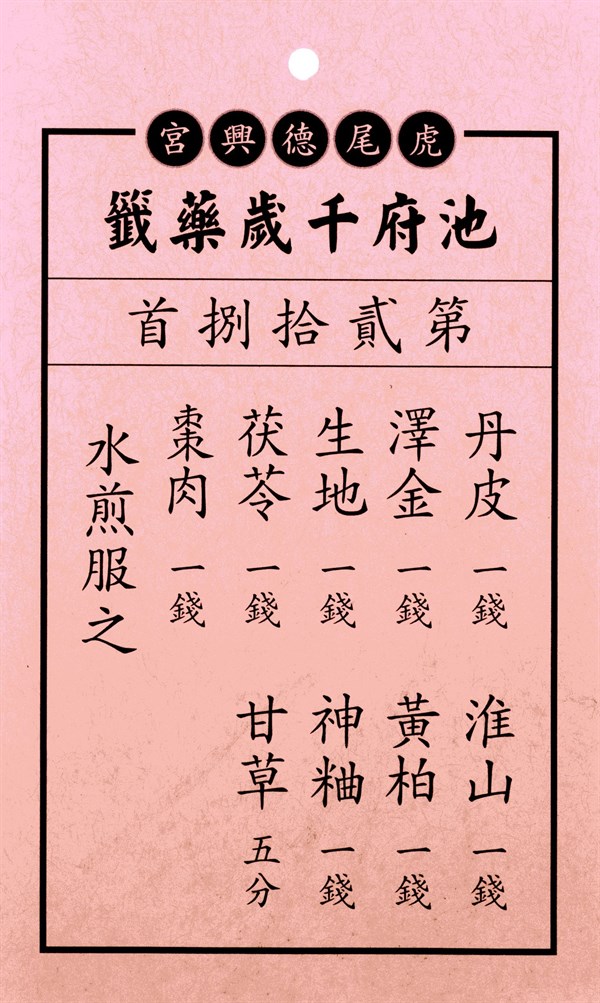 虎尾德興宮
池府千歲藥籤
第貳拾捌首
丹皮 一錢 淮山 一錢
澤金 一錢 黃柏 一錢
生地 一錢 神粬 一錢
茯苓 一錢 甘草 五分
棗肉 一錢
水煎服之